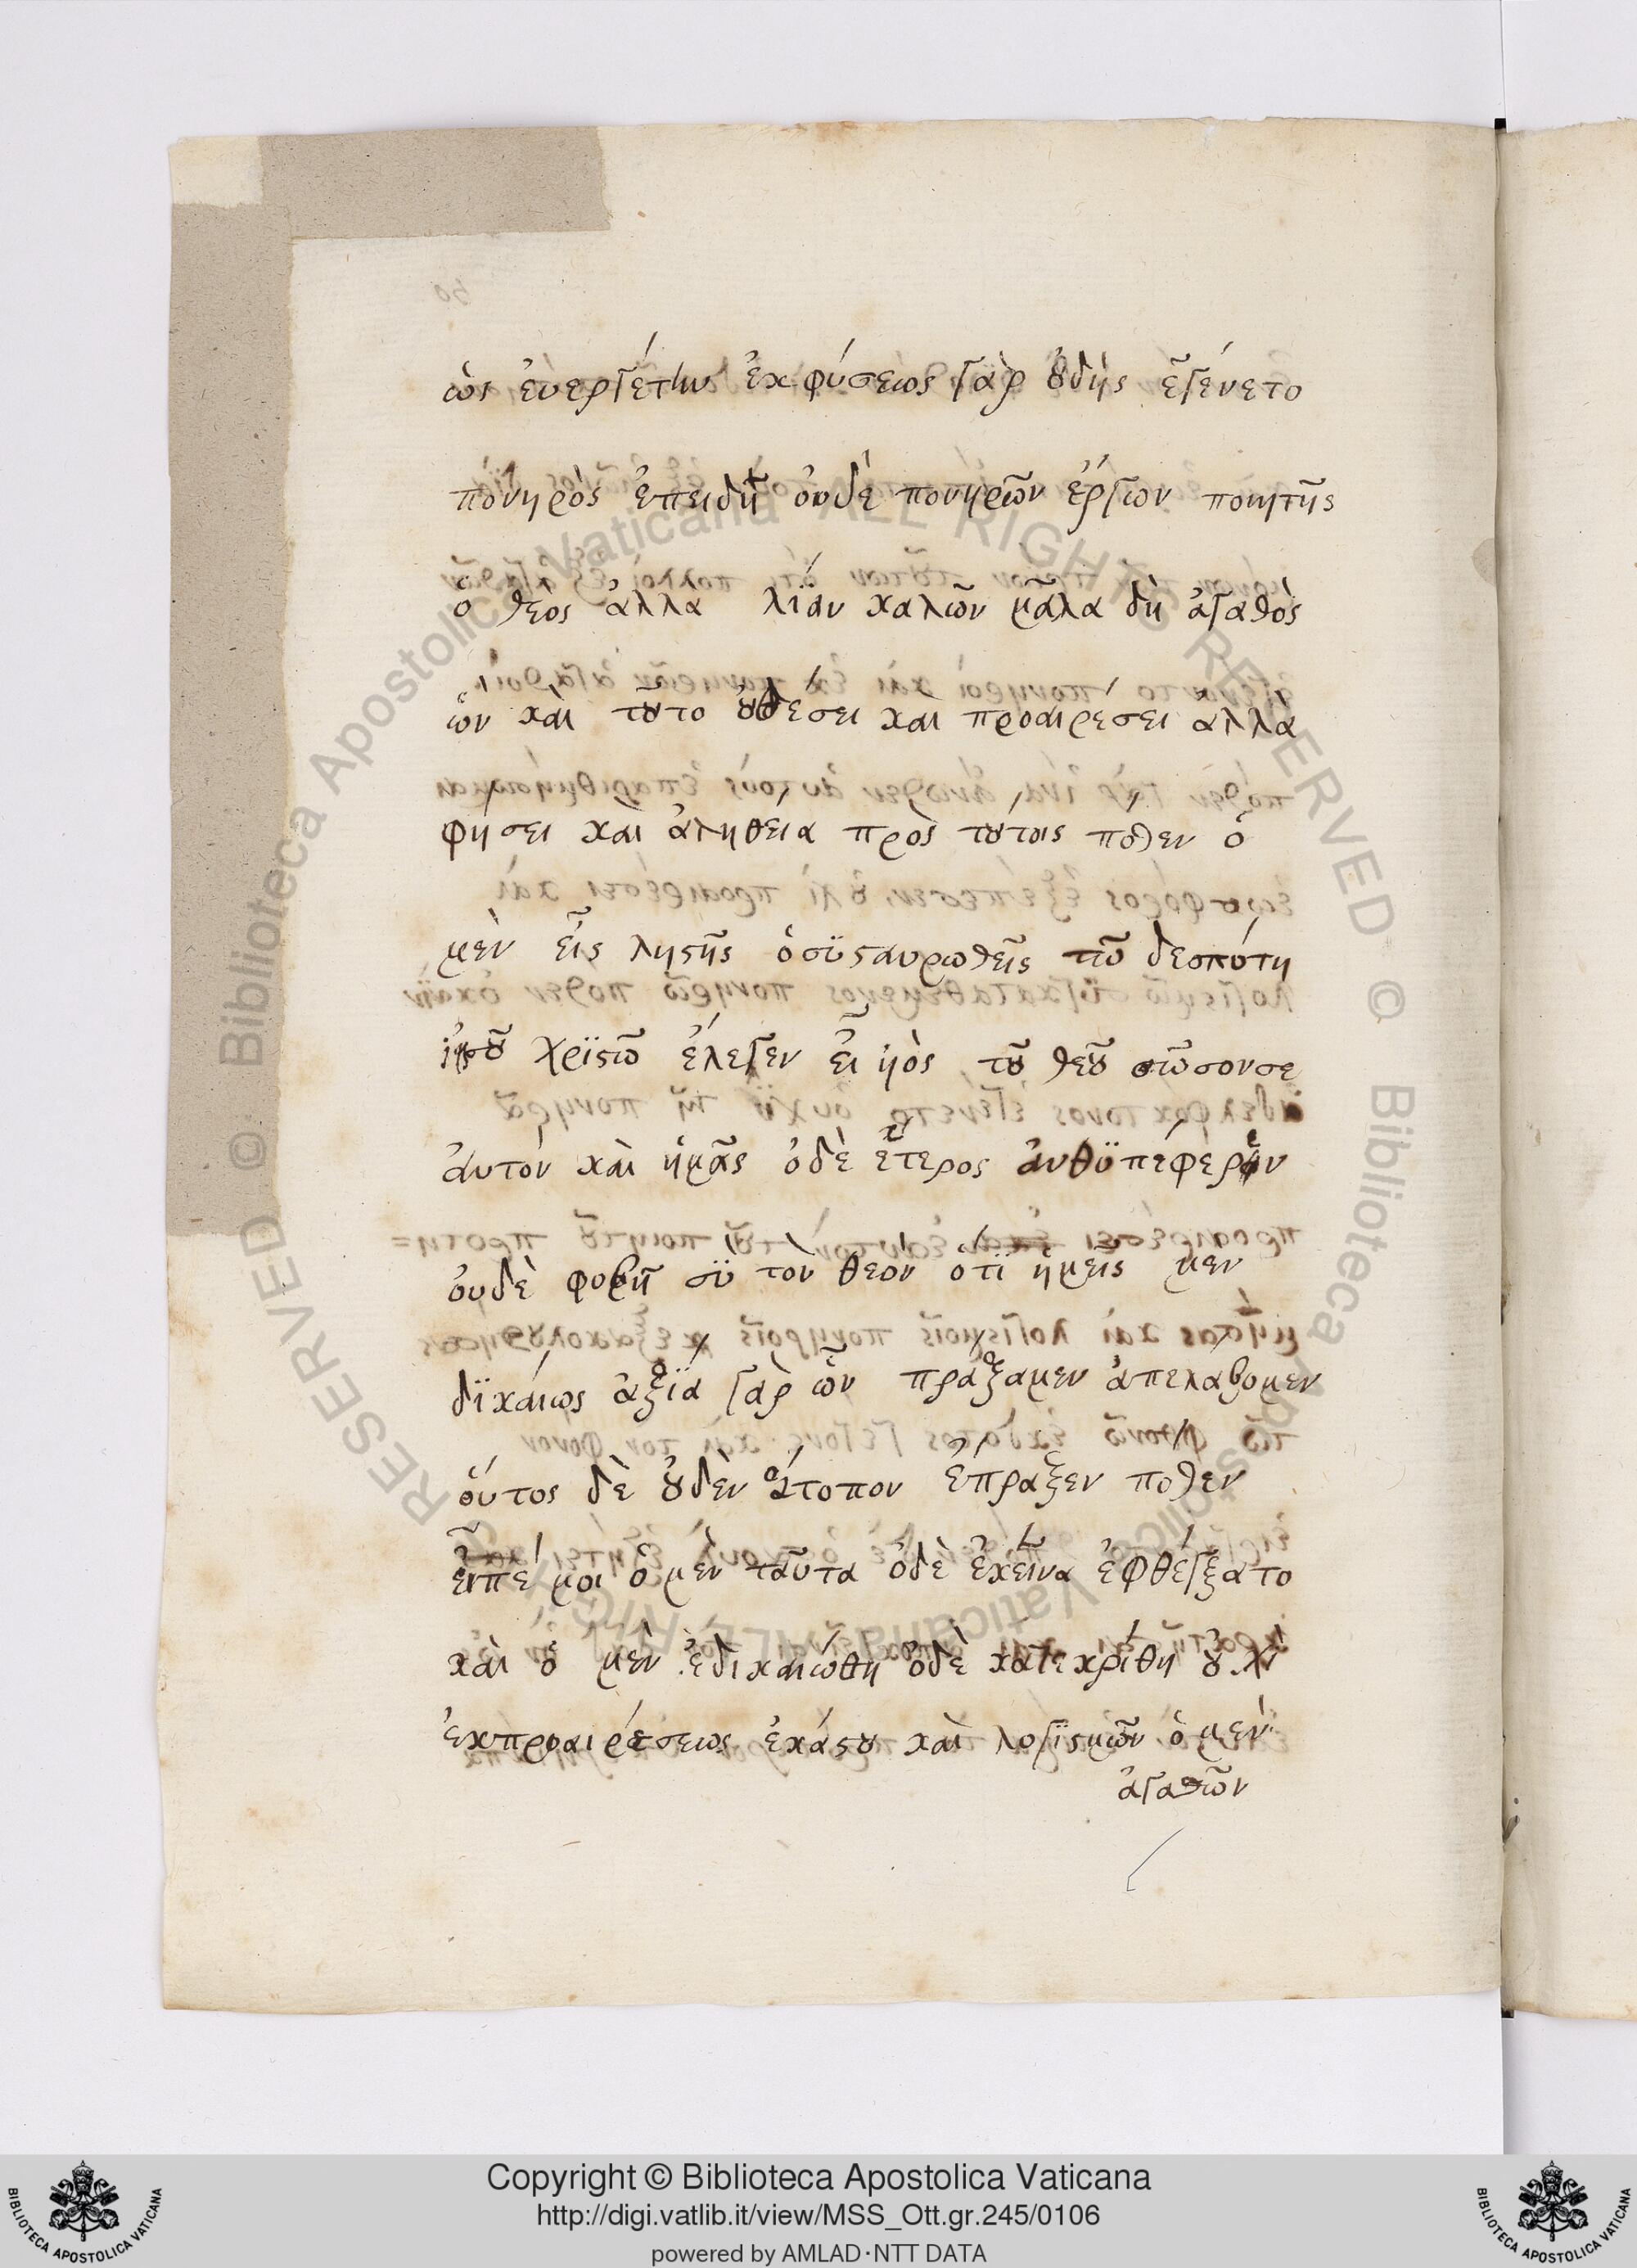 ὼς ἐυεργέτην ἐκφύσεως γὰρ ὀυδὴς ἐγένετο
πονηρὸς ἐπειδῆ ὀυδὲ πονηρῶν ἔργων ποιητῆς
ὁ θεος ἀλλὰ λΐαν καλῶν μᾶλα δὴ ἀγαθὸς
ὢν καὶ τοῦτο ὀυθέσει καὶ προαιρέσει ἀλλὰ
φήσει καὶ ἀληθεία πρὸς τούτοις πόθεν ὁ
μὲν εἷς ληστῆς ὁσϋσταυρωθεῖς τῶ δεσπότη
ἰησοῦ χρϊστῶ ἔλεγεν εἶ ἡὸς τοῦ θεοῦ σῶσονσε
ἀυτόν καὶ ἡμᾶς ὁδὲ ἕτερος ἀνθϋπέφερεν
ὀυδὲ φοβῆ σϋ τὸν θεόν ὅτϊ ἡμεῖς μεν
δϊκαίως ἀξϊα γὰρ ὧν πράξαμεν ἀπελάβομεν
ὁύτος δὲ ὀυδὲν ἄτοπον ἔπραξεν ποθεν
ἐιπέ μοι ὁ μὲν ταῦτα ὁδὲ ἐκεῖνα ἐφθέγξατο
καὶ ὁ μὲν ἐδικαιώθη ὁδὲ κατεκρίθη ὀυχὶ
ἐκπροαιρέσεως ἑκάστου καὶ λογϊσμῶν ὁ μὲν
ἀγαθῶν
Copyright © Biblioteca Apostolica Vaticana
http://digi.vatlib.it/view/MSS_Ott.gr.245/0106
powered by AMLAD·NTT DATA
BIBLIOTECA APOSTOLICA VATICANA
BIBLIOTECA APOSTOLICA VATICANA
© Biblioteca Apostolica Vaticana ALL RIGHTS RESERVED
© Biblioteca Apostolica Vaticana ALL RIGHTS RESERVED